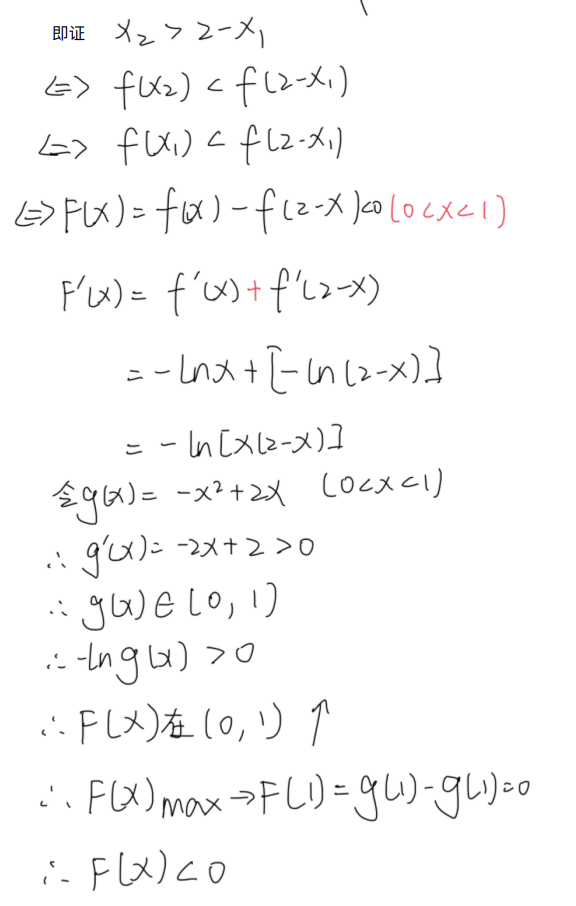 即证 x₂ > 2-x₁
<=> f(x₂) < f(2-x₁)
<=> f(x₁) < f(2-x₁)
<=> F(x) = f(x) - f(2-x) <0 (0<x<1)
F'(x) = f'(x) + f'(2-x)
= -lnx + [-ln(2-x)]
= -ln[x(2-x)]
令g(x) = -x²+2x (0<x<1)
∴ g'(x) = -2x+2 >0
∴ g(x) ∈ (0, 1)
∴ -ln g(x) > 0
∴ F(x)在(0, 1) ↑
∴ F(x)max → F(1) = g(1) - g(1) = 0
∴ F(x) < 0